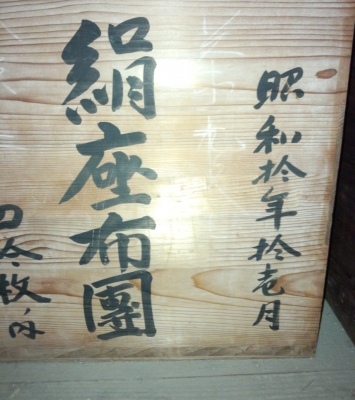 昭和拾年拾壱月
絹座布團
枚ノ内